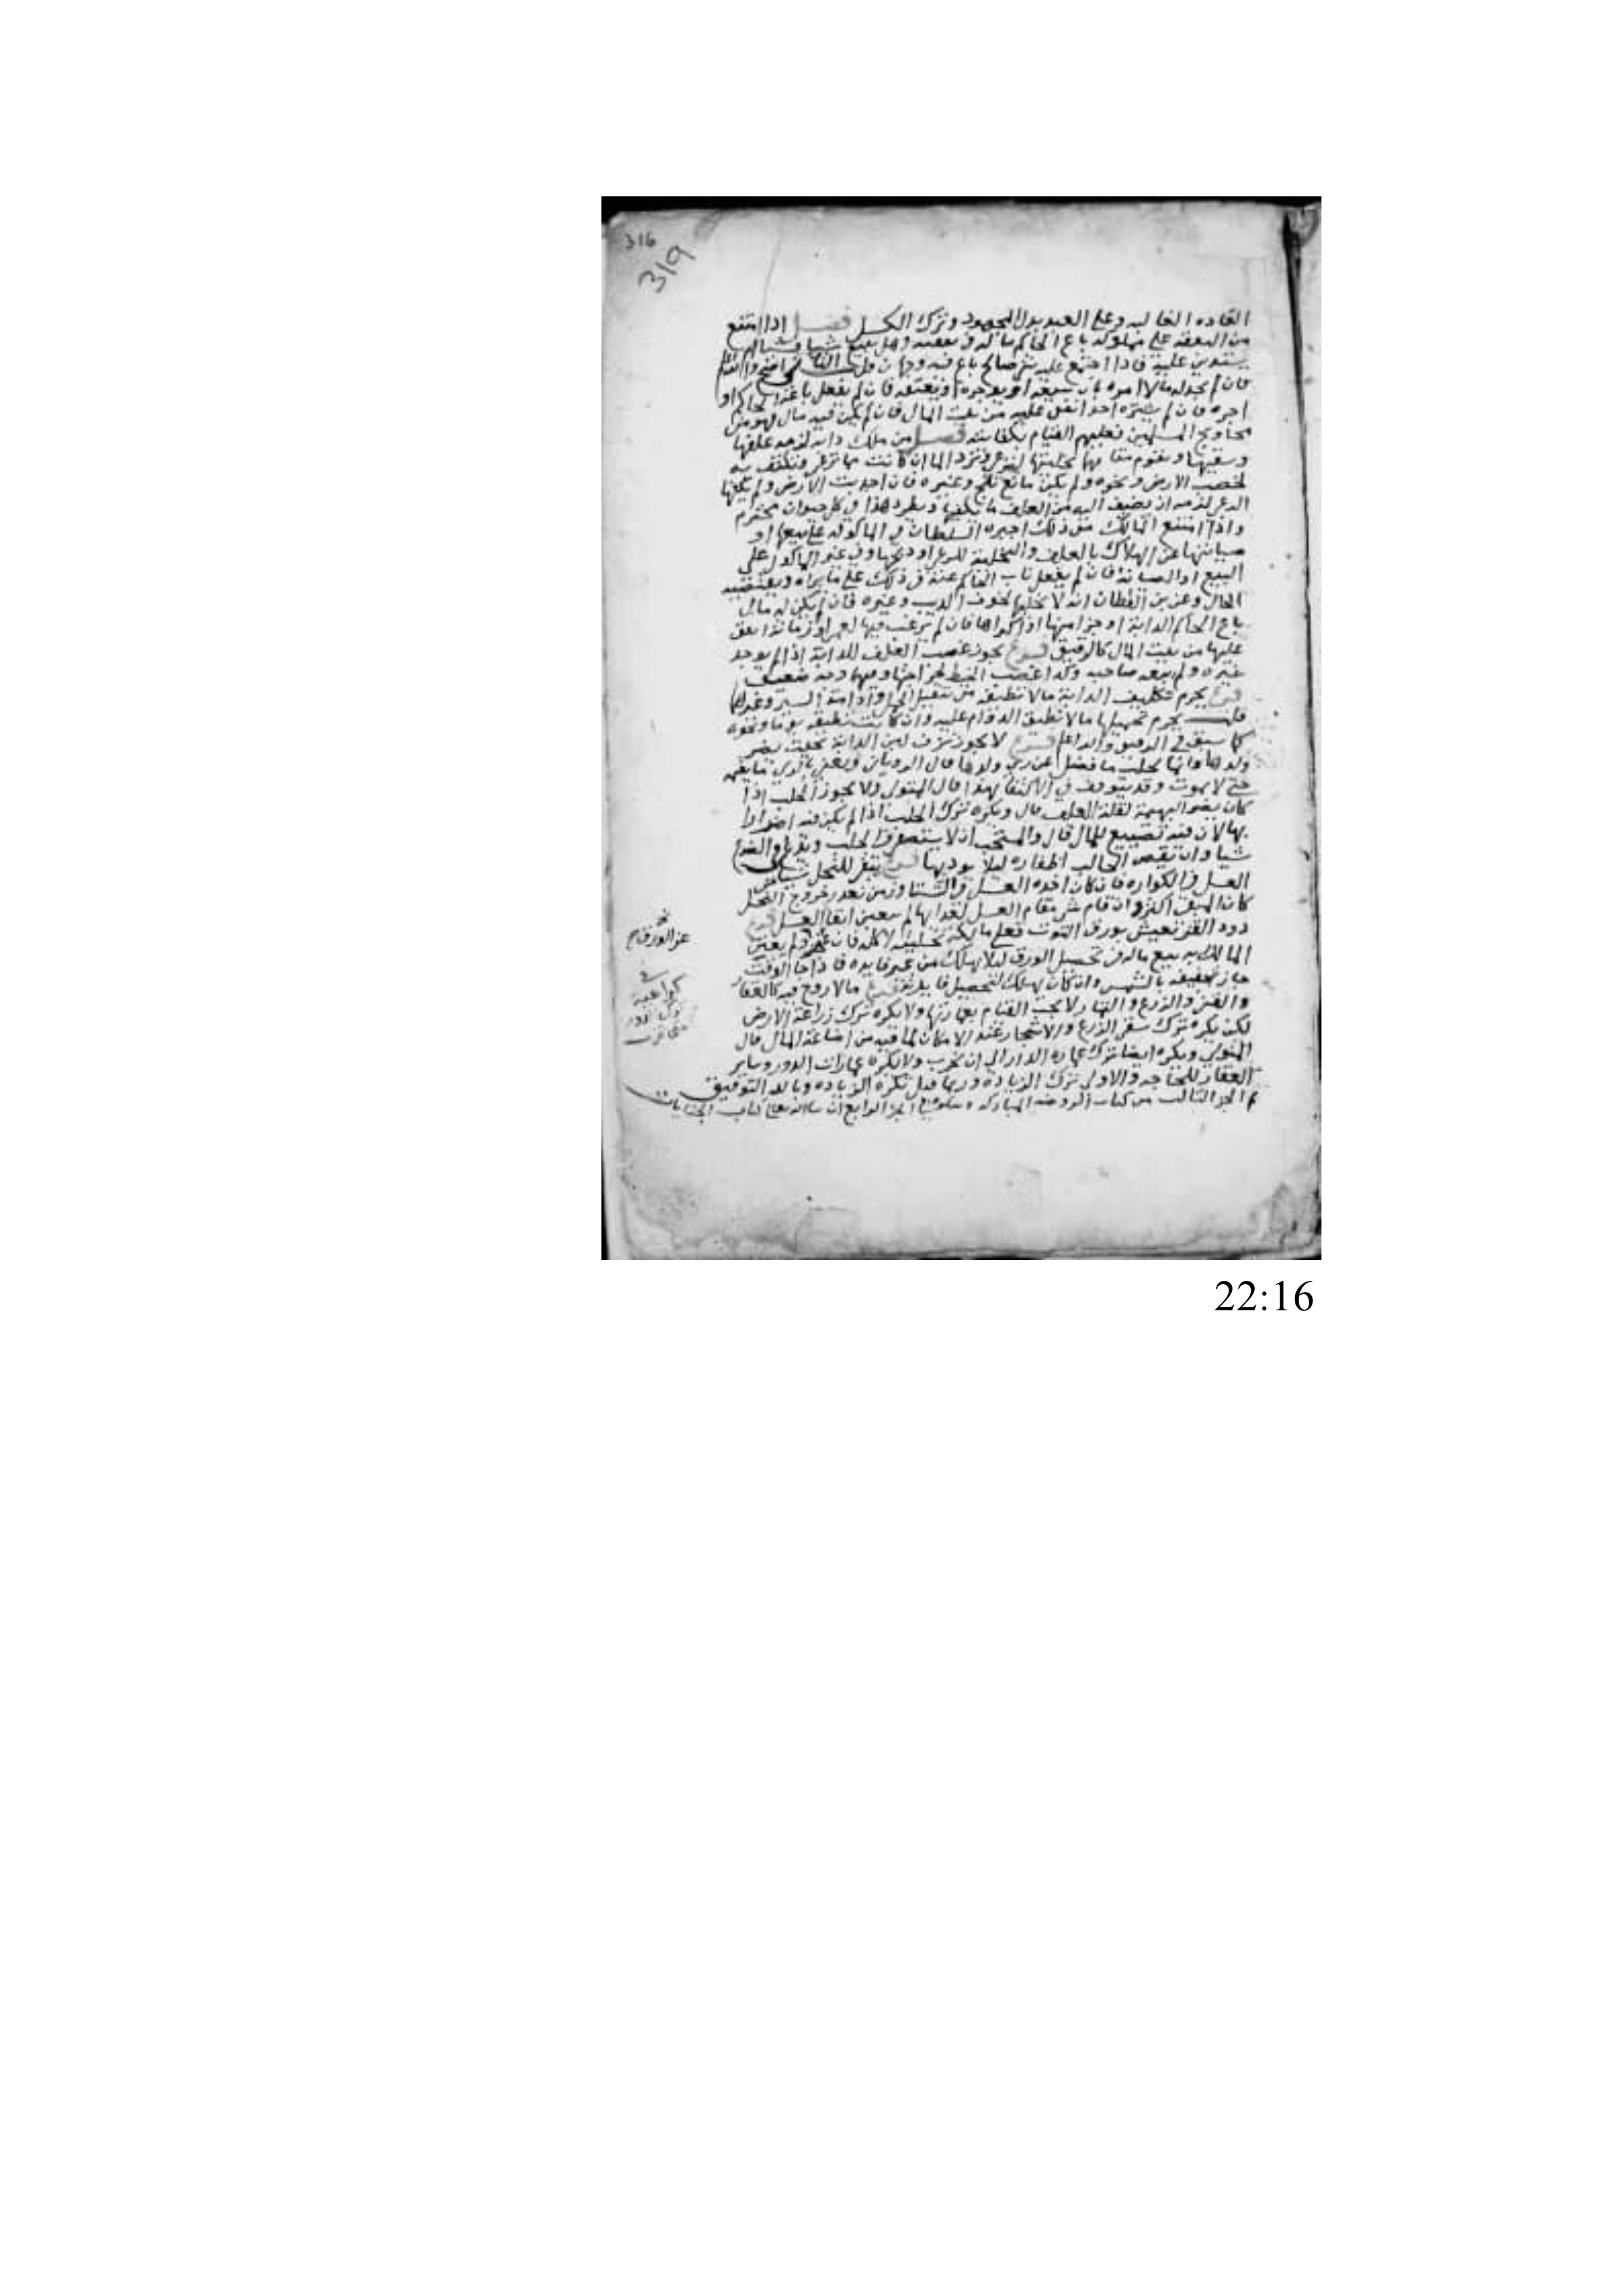 316
319
العاده الغالبه وعلى العبد بذل المجهود وترك الكسل فصل اذا امتنع
من النفقه على مملوكه باع الحاكم ماله في نفقته وهل يبيع شيا فشيا ام
يستدين عليه فاذا اجتمع عليه شي صالح باع فيه وجهان قلت الثاني اصح والله اعلم
فان لم يجد له مالا امره بان يبيعه او يوجره او يعتقه فان لم يفعل باعه الحاكم او
اجره فان لم يشتره احد انفق عليه من بيت المال فان لم يكن فيه مال فهو من
محاويج المسلمين فعليهم القيام بكفايته فصل من ملك دابه لزمه علفها
وسقيها ويقوم مقامها تخليتها لترعى وترد الما ان كانت مما ترعى وتكتفي به
لخصب الارض ونحوه ولم يكن مانع ثلج وغيره فان اجدبت الارض ولم يكفها
الرعي لزمه ان يضيف اليه من العلف ما يكفيها ويطرد هذا في كل حيوان محترم
واذا امتنع المالك من ذلك اجبره السلطان في الماكوله على بيعها او
صيانتها عن الهلاك بالعلف والتخلية للرعي او ذبحها وفي غير الماكول على
البيع او الصيانة فان لم يفعل ناب الحاكم عنه في ذلك على ما يراه ويقتضيه
الحال وعن بن القطان انه لا يخليها لخوف الذيب وغيره فان لم يكن له مال
باع الحاكم الدابة او جزا منها او اكراها فان لم يرغب فيها لعمى او زمانة انفق
عليها من بيت المال كالرقيق فرع يجوز غصب العلف للدابة اذا لم يوجد
غيره ولم يبعه صاحبه وكذا غصب الخيط لجراحتها وفيهما وجه ضعيف
فرع يحرم تكليف الدابة مالا تطيقه من تثقيل الحمل وادامة السير وغيرهما
قلت يحرم تحميلها مالا تطيق الدوام عليه وان كانت تطيقه يوما ونحوه
كما سبق في الرقيق والله اعلم فرع لا يجوز نزف لبن الدابة بحيث يضر
ولدها وانما يحلب ما فضل عن ري ولدها قال الروياني ويعني بالري ما يقيمه
حتى لا يموت وقد يتوقف في الاكتفا بهذا قال المتولي ولا يجوز الحلب اذا
كان يضر البهيمة لقلة العلف قال ويكره ترك الحلب اذا لم يكن فيه اضرار
بها لان فيه تضييع للمال قال والمستحب ان لا يستقصي في الحلب ويدع في الضرع
شيا وان يقص الحالب اظفاره ليلا يوذيها فرع يبقي للنحل شيا من
العسل في الكواره فان كان اخذه العسل في الشتا وزمن تعذر خروج النحل
كان المبقى اكثر وان قام شي مقام العسل لغذايها لم يتعين ابقا العسل فرع
دود القز تعيش بورق التوت فعلى مالكه تخليته لاكله فان عز ولم يعتن
المالك به بيع ماله في تحصيل الورق ليلا يهلك من غير فايده فاذا جا الوقت
جاز تجفيفه بالشمس وان كان يهلك لتحصيل فايدته فرع مالا روح فيه كالعقار
والقنى والزرع والثمار لا يجب القيام بعمارتها ولا يكره ترك زراعة الارض
لكن يكره ترك سقي الزرع والاشجار عند الامكان لما فيه من اضاعة المال قال
المتولي ويكره ايضا ترك عمارة الدار الى ان تخرب ولا يكره عمارات الدور وساير
العقار للحاجه والاولى ترك الزياده وربما قيل تكره الزياده وبالله التوفيق
تم الجز الثالث من كتاب الروضه المباركه ويتلوه في الجز الرابع ان شا الله تعالى كتاب الجنايات
عز الورق
22:16